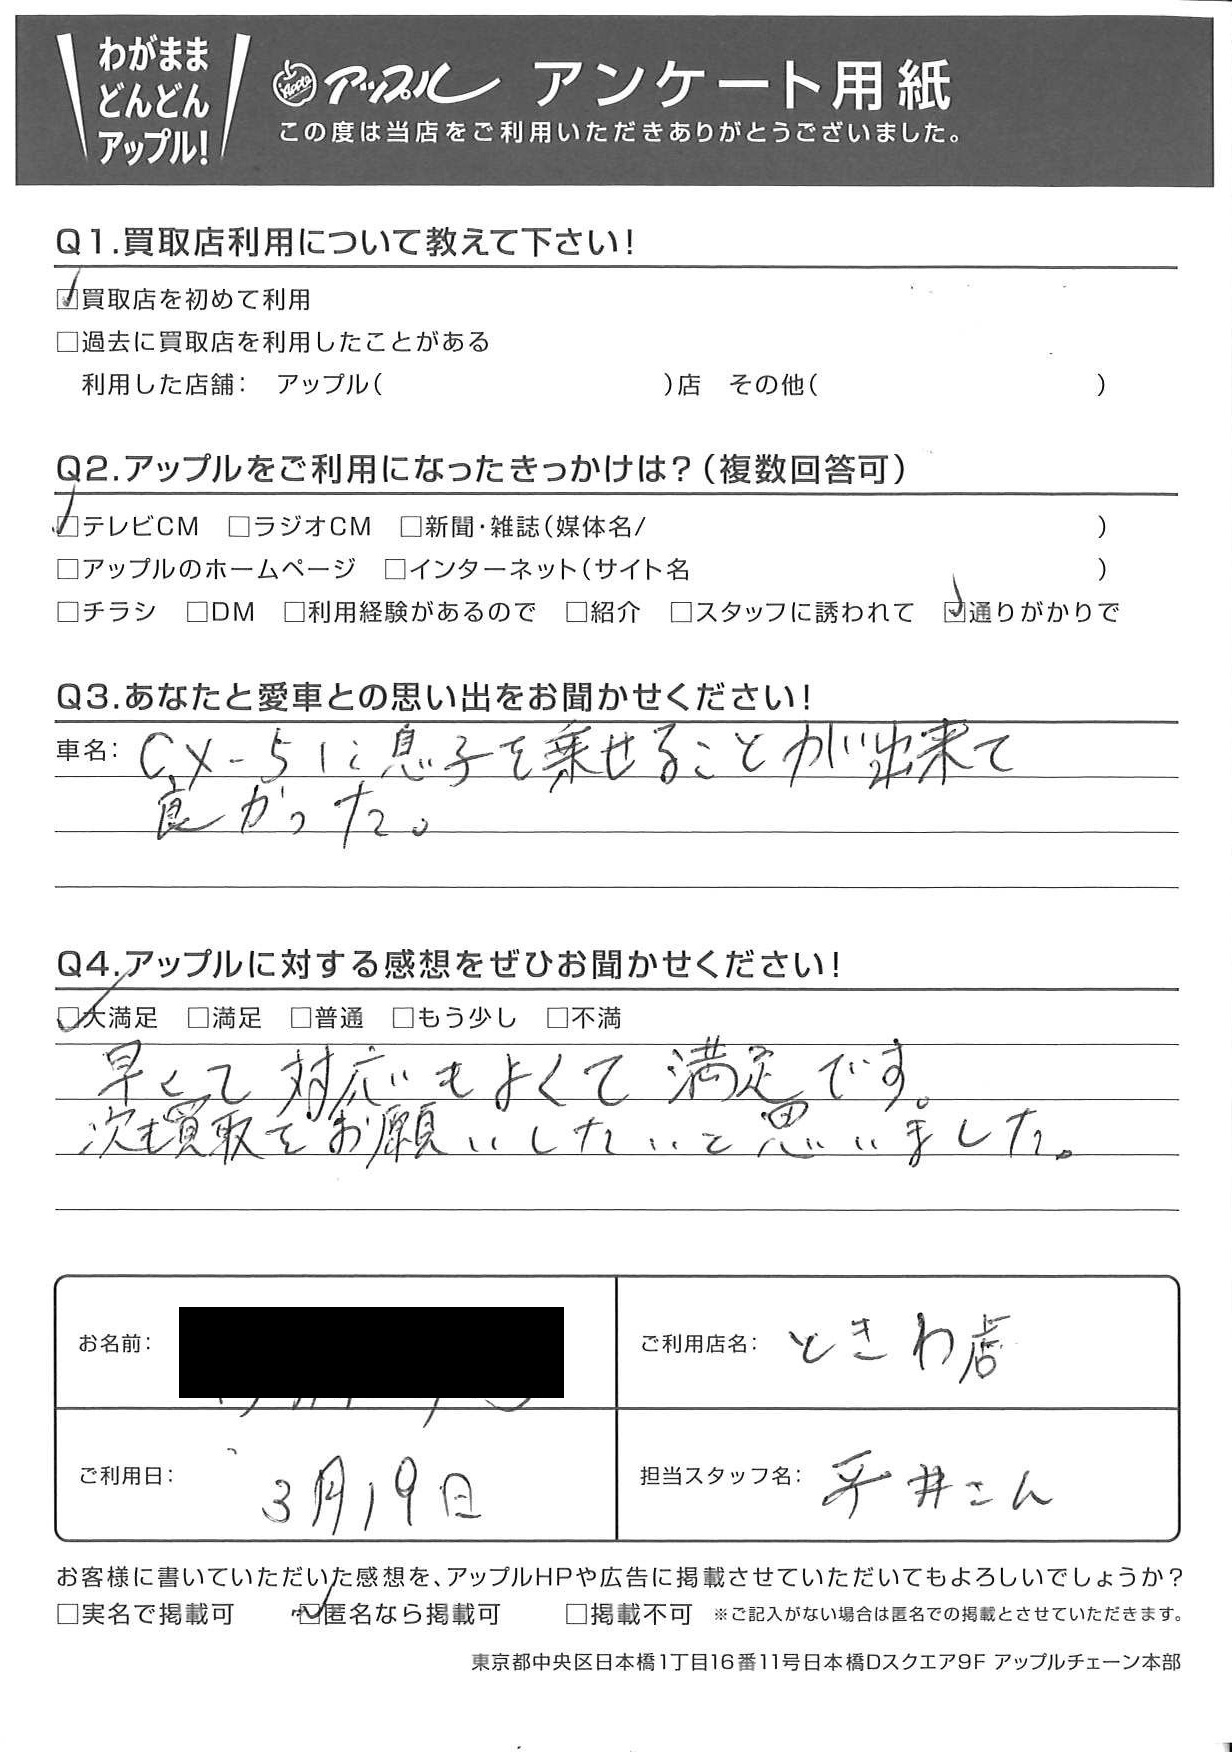 わがまま
どんどん
アップル!
Apple アップル アンケート用紙
この度は当店をご利用いただきありがとうございました。
Q1.買取店利用について教えて下さい!
☑買取店を初めて利用
□過去に買取店を利用したことがある
利用した店舗: アップル( )店 その他( )
Q2.アップルをご利用になったきっかけは?(複数回答可)
☑テレビCM □ラジオCM □新聞・雑誌(媒体名/ )
□アップルのホームページ □インターネット(サイト名 )
□チラシ □DM □利用経験があるので □紹介 □スタッフに誘われて ☑通りがかりで
Q3.あなたと愛車との思い出をお聞かせください!
車名: CX-5に息子を乗せることが出来て
良かった。
Q4.アップルに対する感想をぜひお聞かせください!
☑大満足 □満足 □普通 □もう少し □不満
早くて対応もよくて満足です。
次も買取をお願いしたいと思いました。
お名前:
ご利用店名: ときわ店
ご利用日: 3月19日
担当スタッフ名: 平井さん
お客様に書いていただいた感想を、アップルHPや広告に掲載させていただいてもよろしいでしょうか?
□実名で掲載可 ☑匿名なら掲載可 □掲載不可 ※ご記入がない場合は匿名での掲載とさせていただきます。
東京都中央区日本橋1丁目16番11号日本橋Dスクエア9F アップルチェーン本部